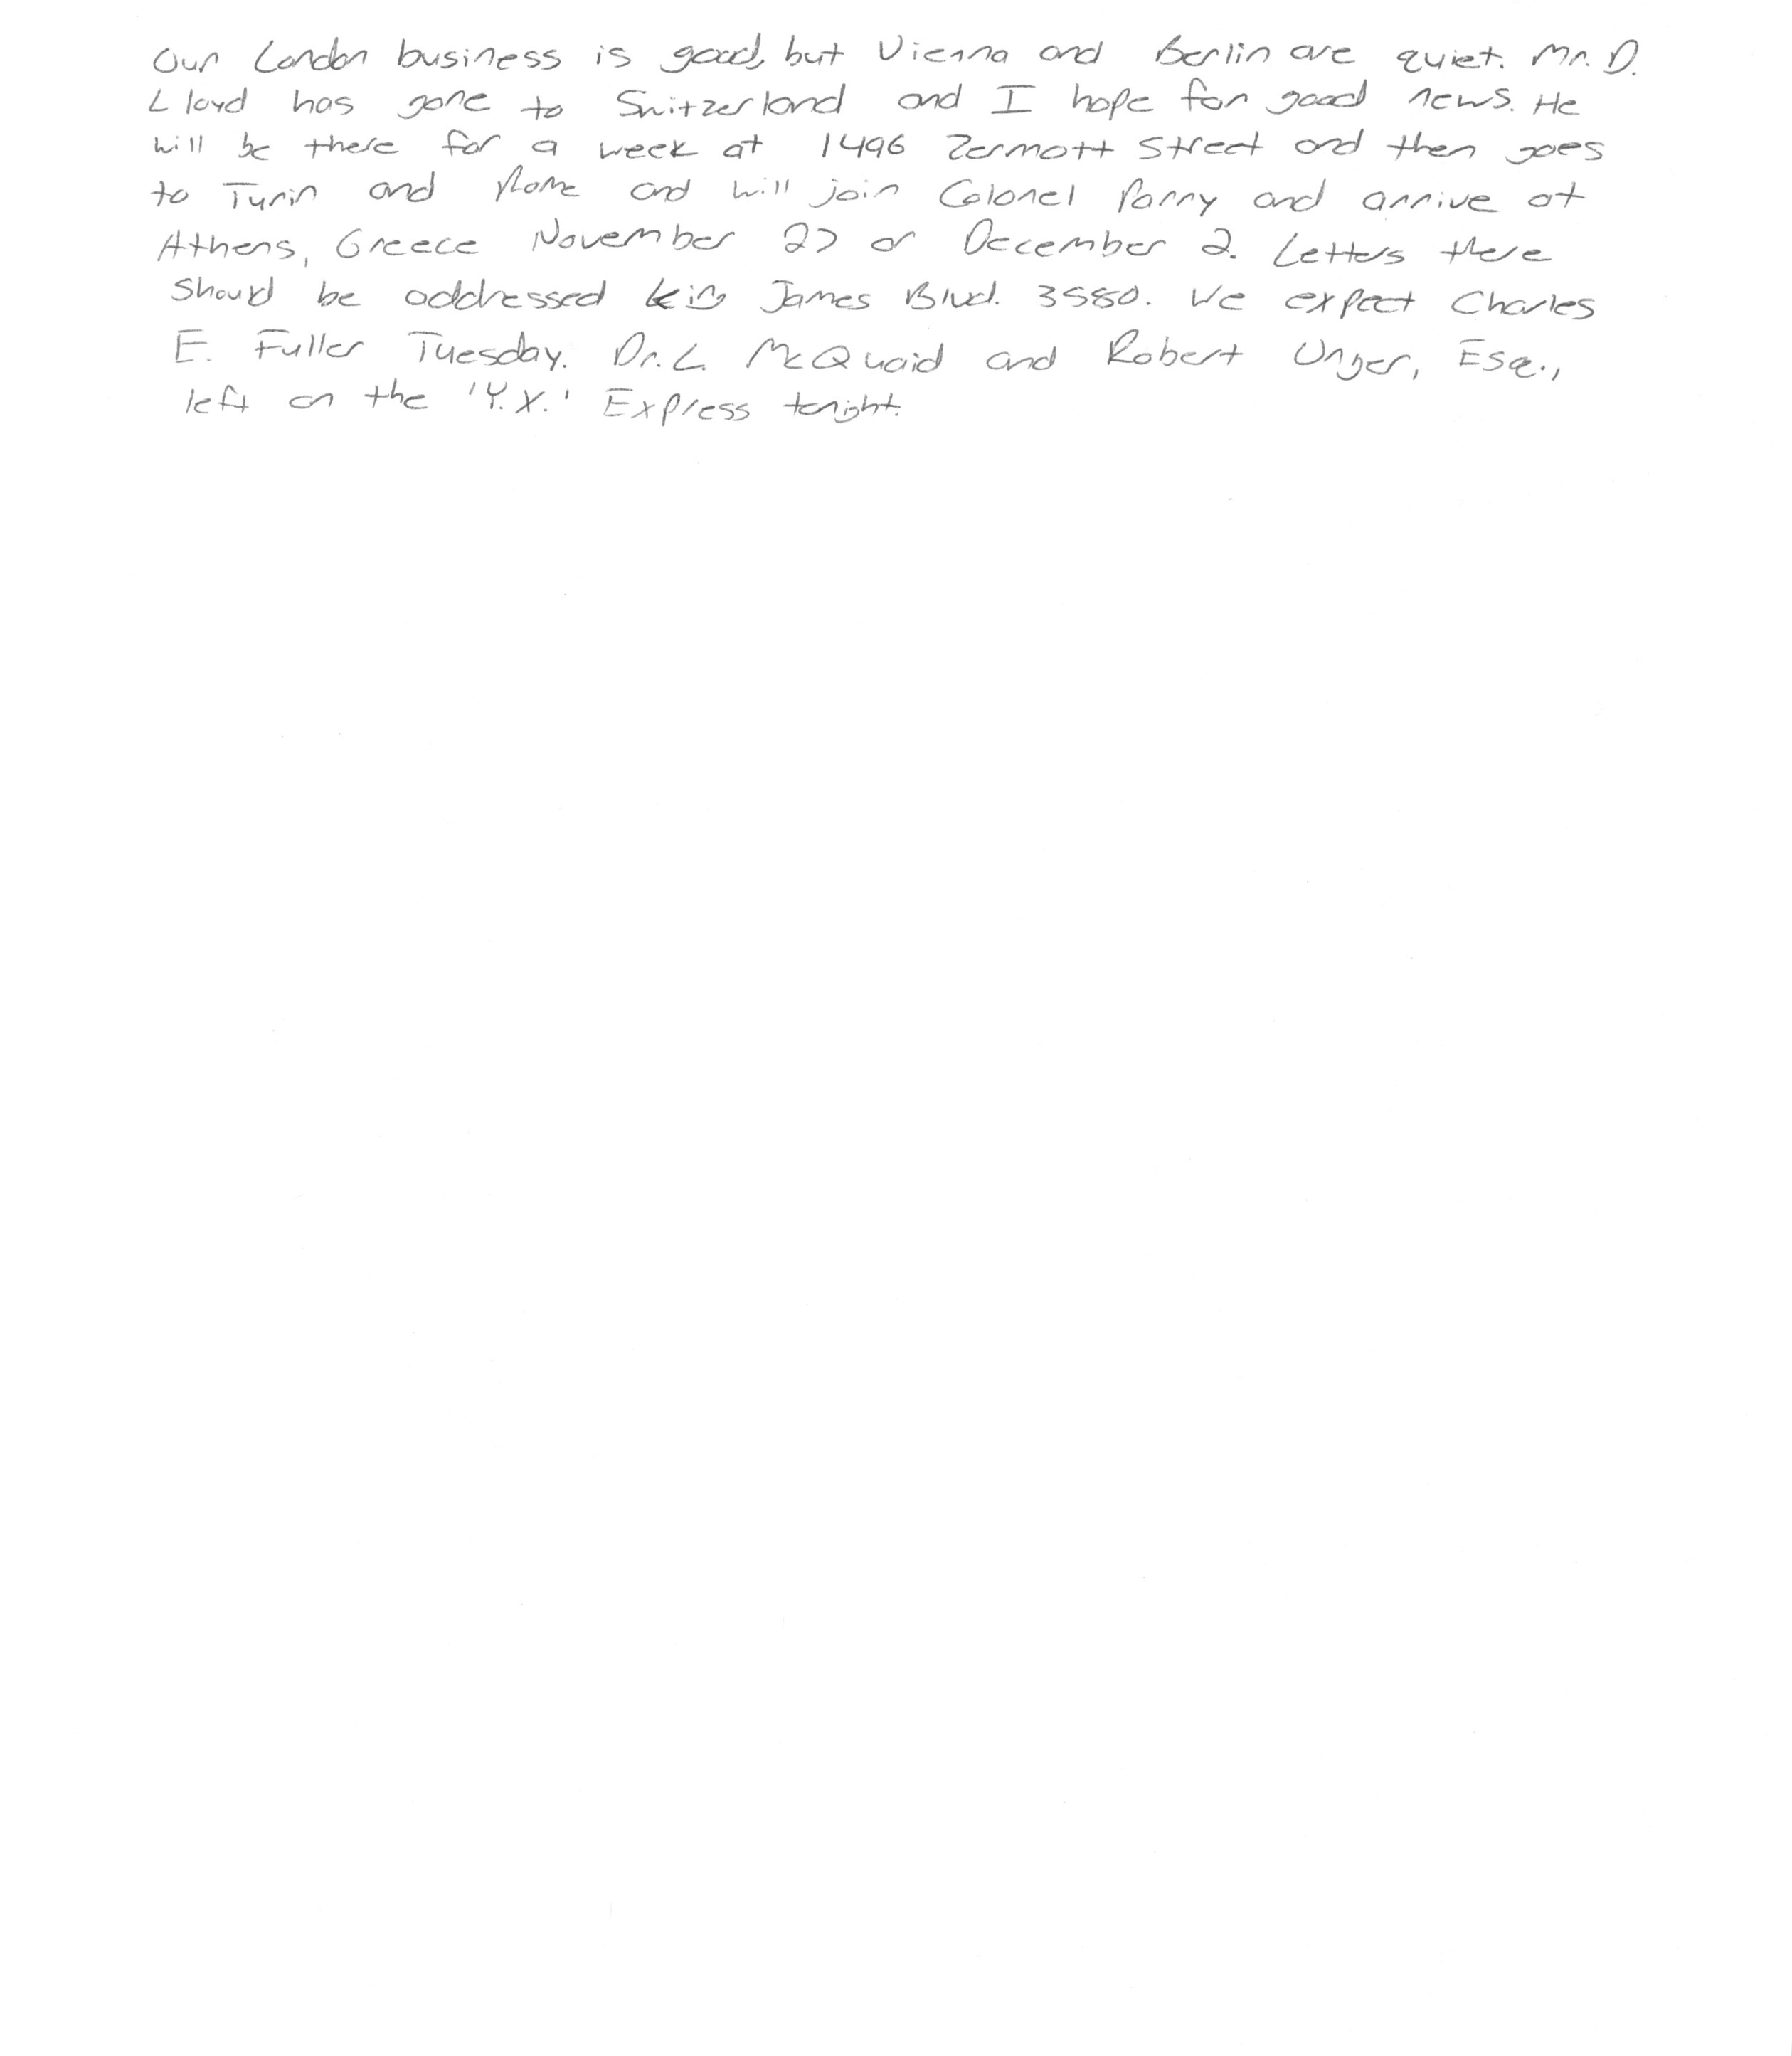 Our London business is good, but Vienna and Berlin are quiet. Mr. D.
Lloyd has gone to Switzerland and I hope for good news. He
will be there for a week at 1496 Zermott Street and then goes
to Turin and Rome and will join Colonel Parry and arrive at
Athens, Greece November 27 or December 2. Letters there
should be addressed King James Blvd. 3580. We expect Charles
E. Fuller Tuesday. Dr. L. McQuaid and Robert Unger, Esq.,
left on the 'Y.X.' Express tonight.